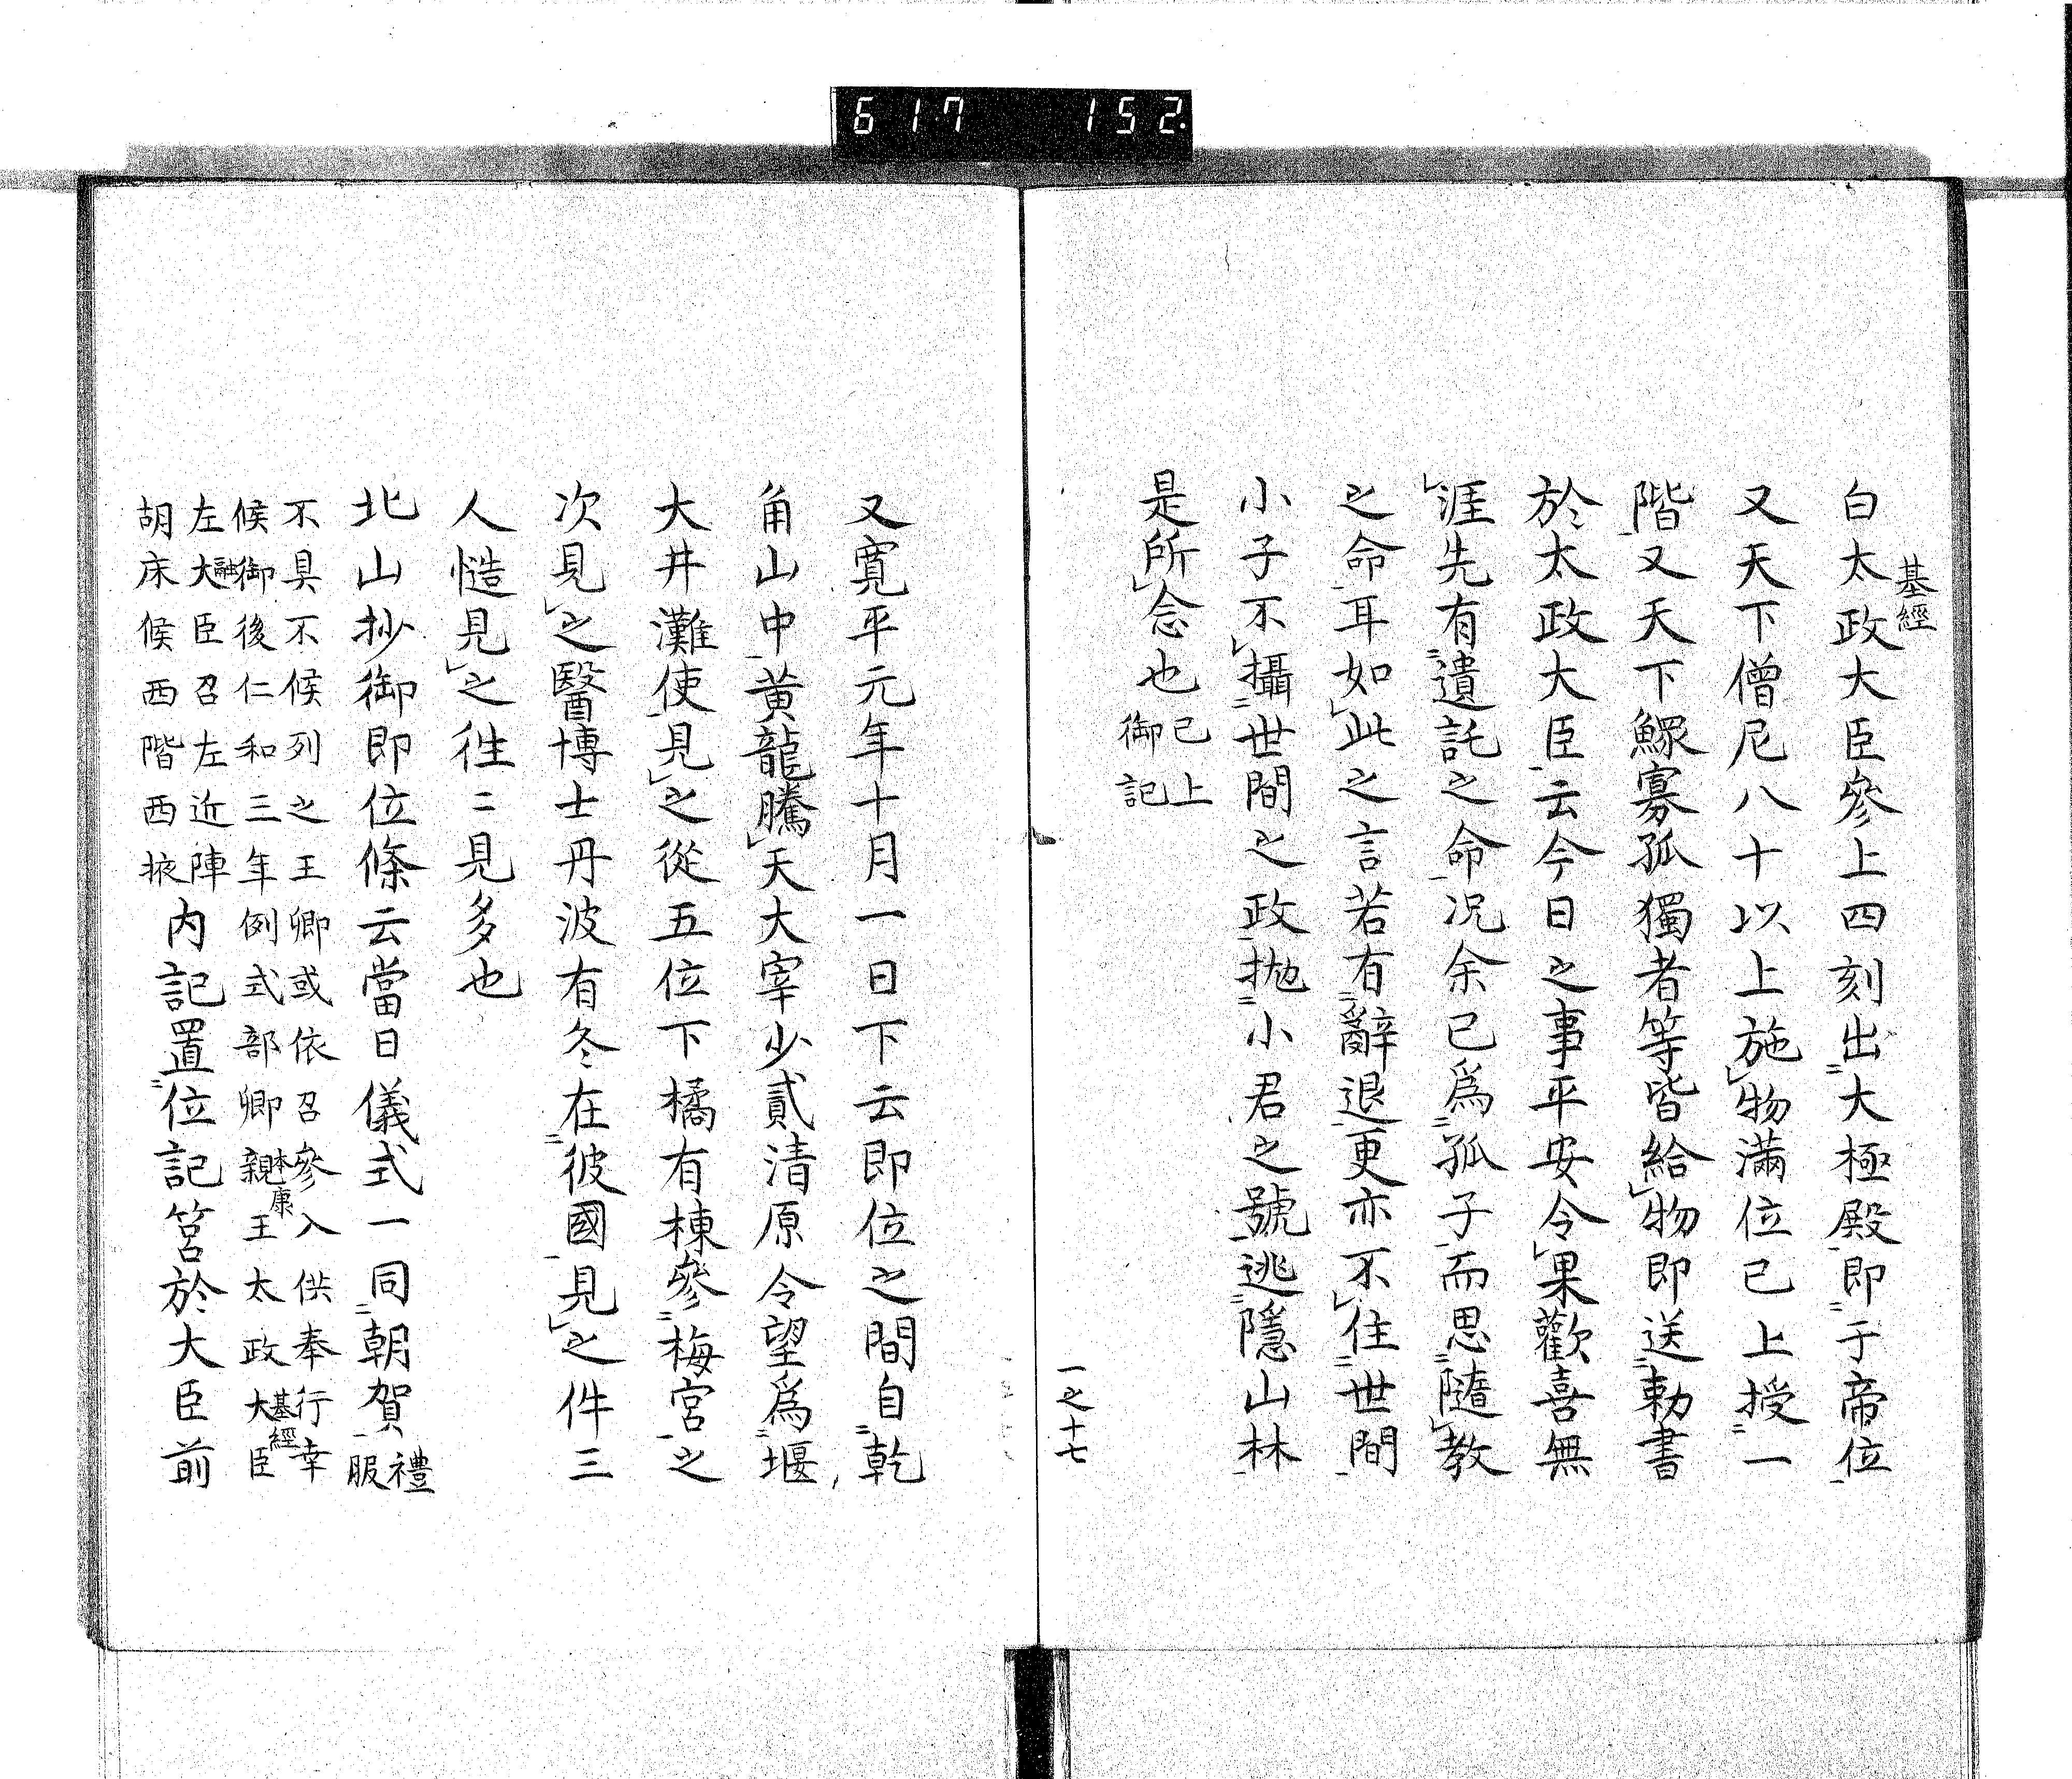 617 152
白太政大臣參上四刻出大極殿即于帝位
基經
又天下僧尼八十以上施物滿位已上授一
階又天下鰥寡孤獨者等皆給物即送勅書
於太政大臣云今日之事平安令果歡喜無
涯先有遺託之命况余已爲孤子而思隨教
之命耳如此之言若有辭退更亦不住世間
小子不攝世間之政抛小君之號逃隱山林
是所念也已上
御記
一之十七
又寛平元年十月一日下云即位之間自乾
角山中黄龍騰天大宰少貳清原令望爲堰
大井灘使見之從五位下橘有棟參梅宮之
次見之醫博士丹波有冬在彼國見之件三
人慥見之徃〻見多也
北山抄御即位條云當日儀式一同朝賀禮
服
不具不候列之王卿或依召參入供奉行幸
候御後仁和三年例式部卿親王太政大臣
本康
基經
左大臣召左近陣
融
胡床候西階西掖
内記置位記筥於大臣前